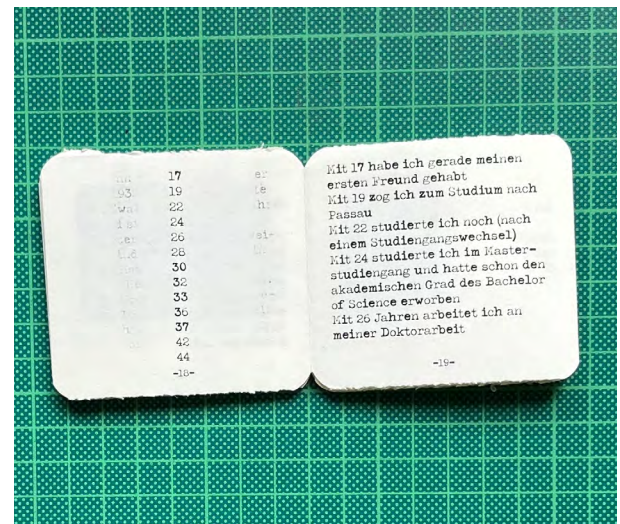 17
19
22
24
26
28
30
32
33
36
37
42
44
-18-
Mit 17 habe ich gerade meinen
ersten Freund gehabt
Mit 19 zog ich zum Studium nach
Passau
Mit 22 studierte ich noch (nach
einem Studiengangswechsel)
Mit 24 studierte ich im Master-
studiengang und hatte schon den
akademischen Grad des Bachelor
of Science erworben
Mit 26 Jahren arbeitet ich an
meiner Doktorarbeit
-19-